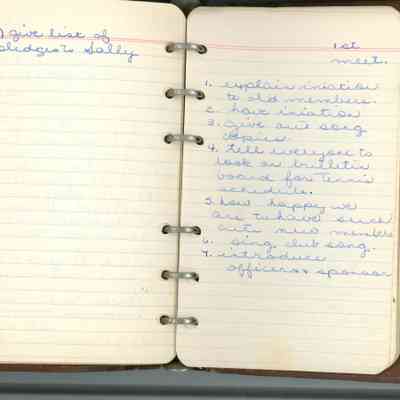 ) give list of
pledges to Sally
1st
meet.
1. explain iniation
to old members.
2. have iniation
3. give out song
copies
4. tell everyone to
look on bulletin
board for Tennis
schedule.
5. how happy we
are to have such
cute new members
6. sing club song.
7. introduce
officers & sponsor